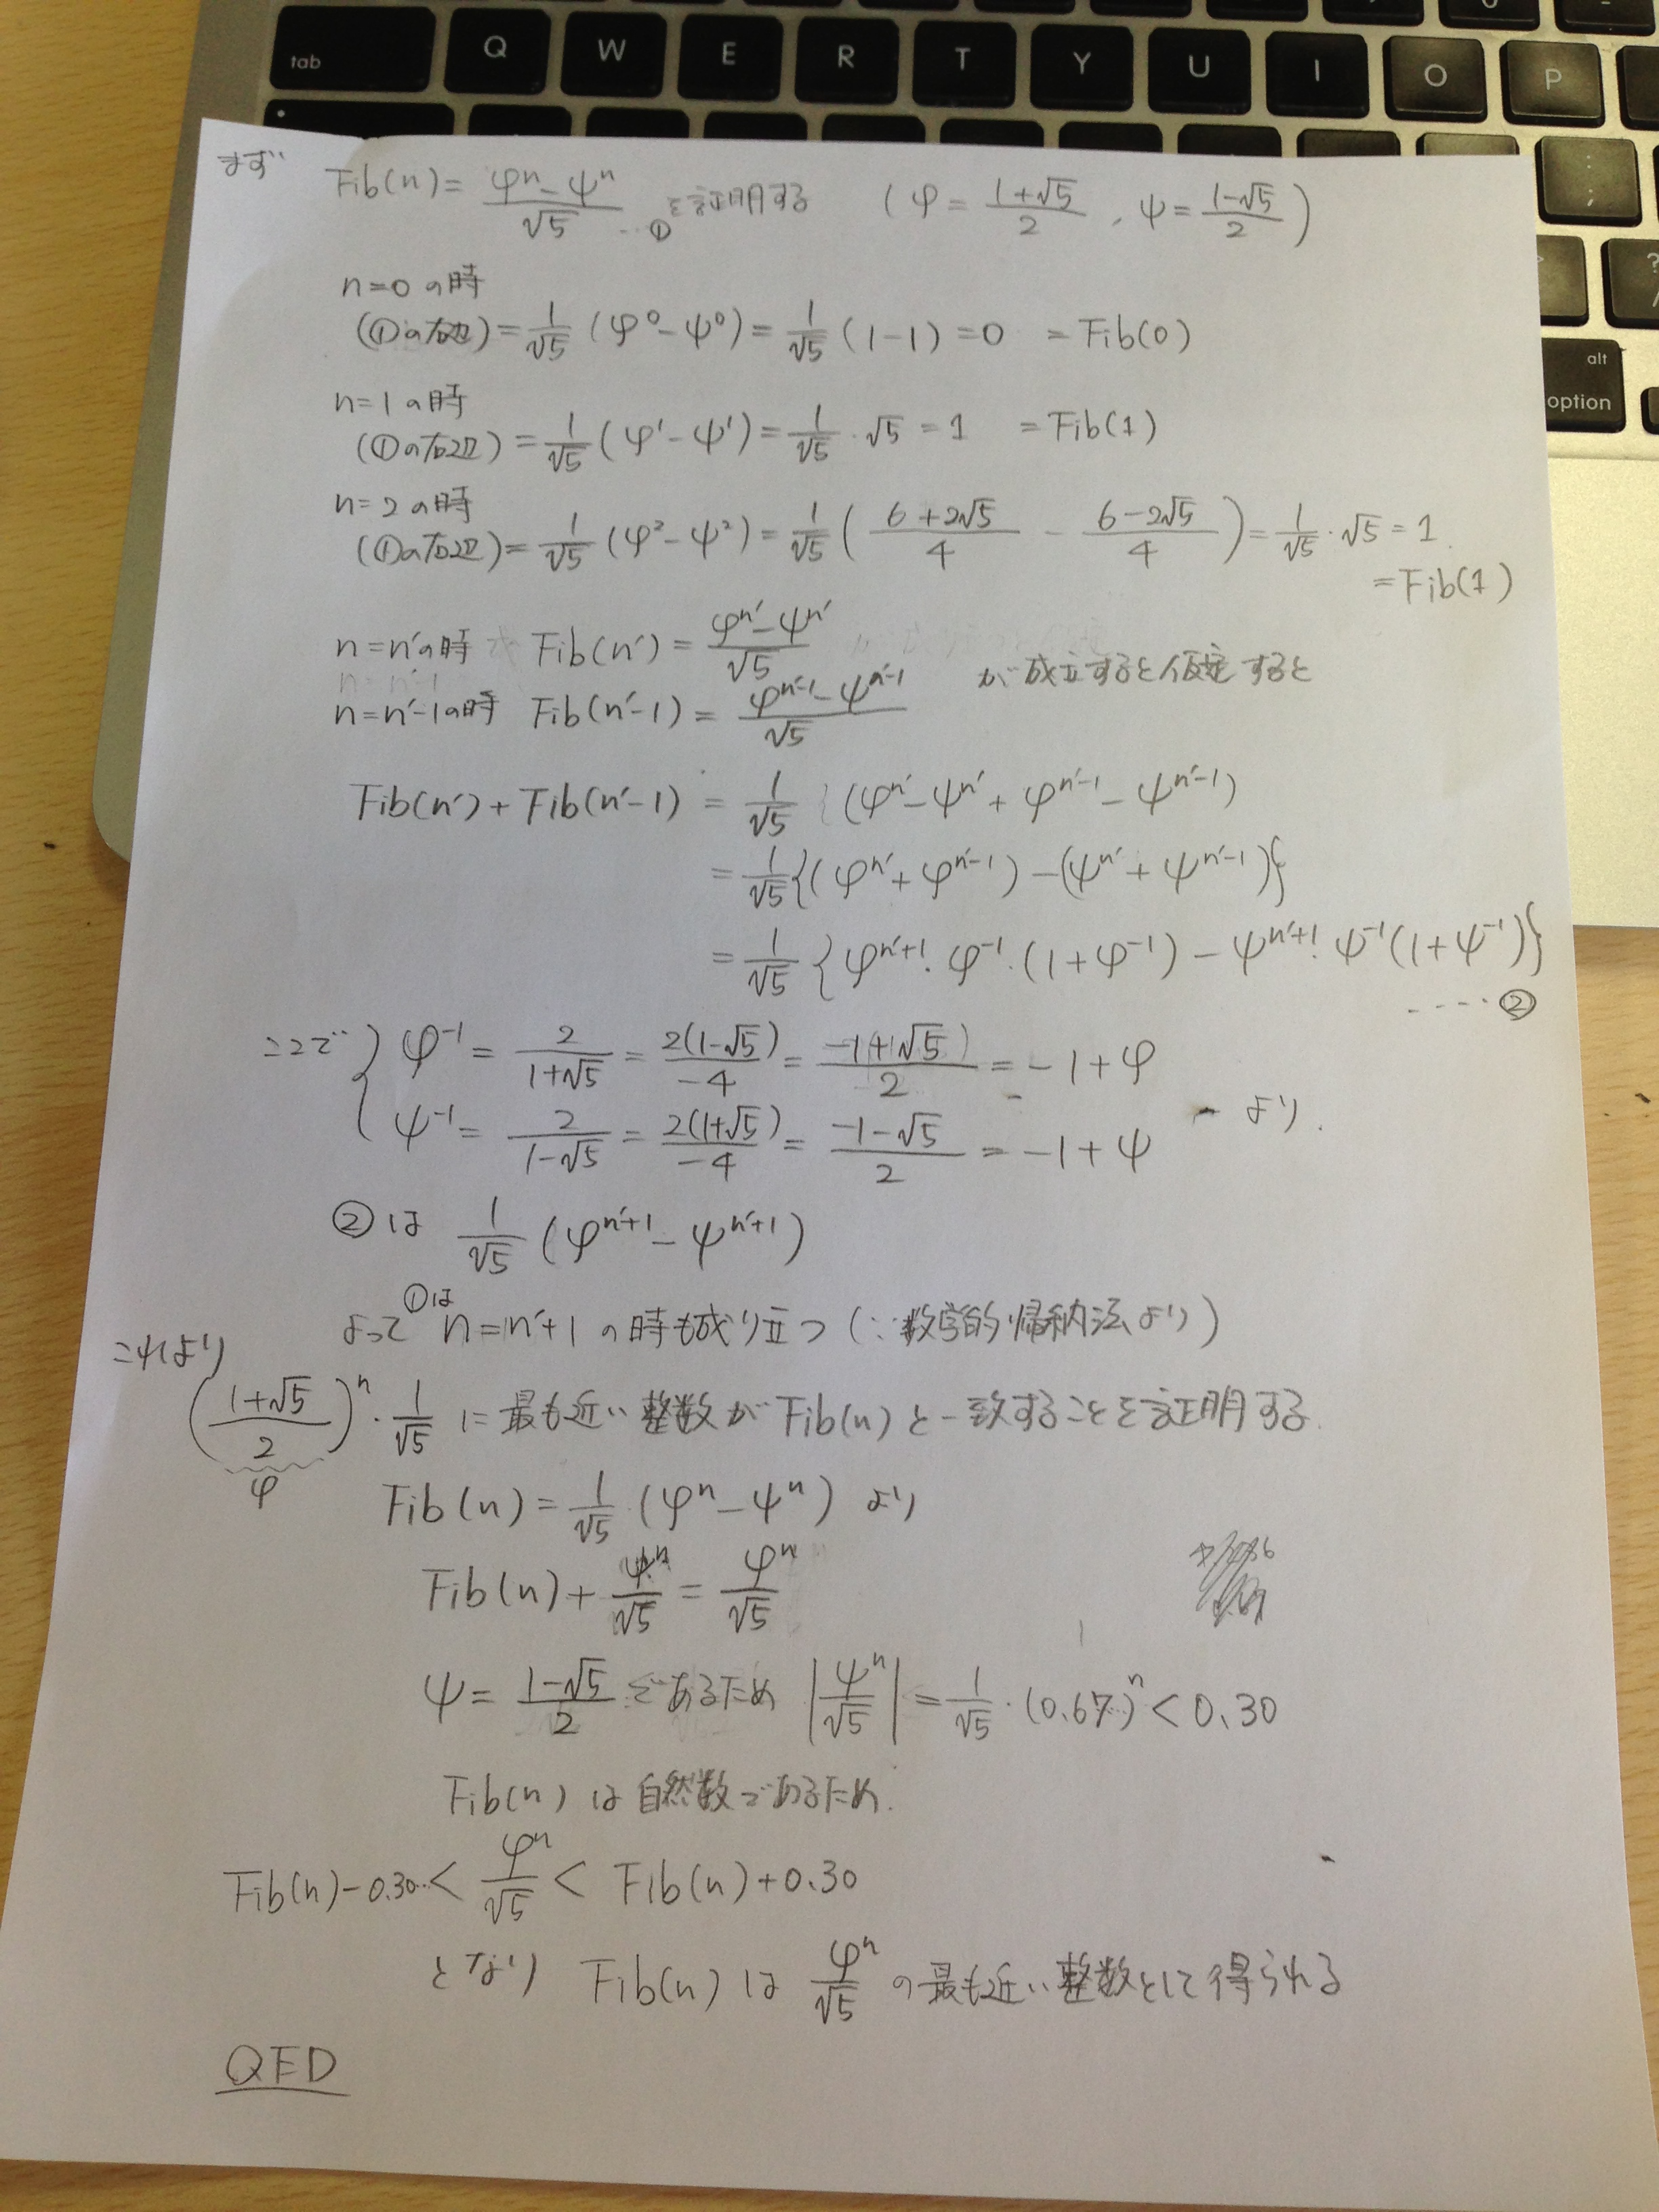 tab Q W E R T Y U I O P
alt
option
まず Fib(n) = (φⁿ - ψⁿ)/√5 …① を証明する (φ = (1+√5)/2 , ψ = (1-√5)/2)
n=0の時
(①の右辺) = 1/√5 (φ⁰ - ψ⁰) = 1/√5 (1-1) = 0 = Fib(0)
n=1の時
(①の右辺) = 1/√5 (φ¹ - ψ¹) = 1/√5 · √5 = 1 = Fib(1)
n=2の時
(①の右辺) = 1/√5 (φ² - ψ²) = 1/√5 ( (6+2√5)/4 - (6-2√5)/4 ) = 1/√5 · √5 = 1
= Fib(1)
n=n'の時 Fib(n') = (φ^n' - ψ^n')/√5
が成立すると仮定すると
n=n'-1の時 Fib(n'-1) = (φ^(n'-1) - ψ^(n'-1))/√5
Fib(n') + Fib(n'-1) = 1/√5 (φ^n' - ψ^n' + φ^(n'-1) - ψ^(n'-1))
= 1/√5 {(φ^n' + φ^(n'-1)) - (ψ^n' + ψ^(n'-1))}
= 1/√5 {φ^(n'+1) · φ⁻¹ · (1+φ⁻¹) - ψ^(n'+1) · ψ⁻¹ (1+ψ⁻¹)}
…②
ここで { φ⁻¹ = 2/(1+√5) = 2(1-√5)/-4 = (-1+√5)/2 = -1+φ
ψ⁻¹ = 2/(1-√5) = 2(1+√5)/-4 = (-1-√5)/2 = -1+ψ より
②は 1/√5 (φ^(n'+1) - ψ^(n'+1))
よって①は n=n'+1 の時も成り立つ (∵数学的帰納法より)
これより
((1+√5)/2)ⁿ · 1/√5 に最も近い整数がFib(n)と一致することを証明する
φ
Fib(n) = 1/√5 (φⁿ - ψⁿ) より
Fib(n) + ψⁿ/√5 = φⁿ/√5
ψ = (1-√5)/2 であるため |ψⁿ/√5| = 1/√5 · (0.67…)ⁿ < 0.30
Fib(n) は自然数であるため
Fib(n) - 0.30.. < φⁿ/√5 < Fib(n) + 0.30
となり Fib(n) は φⁿ/√5 の最も近い整数として得られる
QED